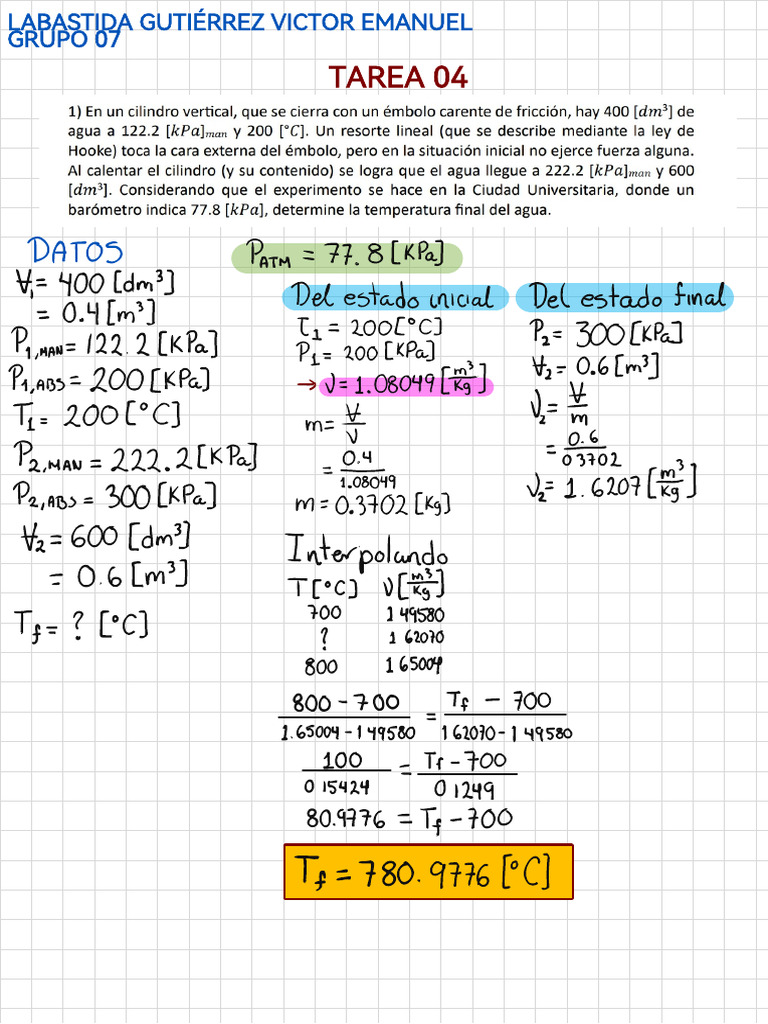 LABASTIDA GUTIÉRREZ VICTOR EMANUEL
GRUPO 07
TAREA 04
1) En un cilindro vertical, que se cierra con un émbolo carente de fricción, hay 400 [dm³] de
agua a 122.2 [kPa]man y 200 [°C]. Un resorte lineal (que se describe mediante la ley de
Hooke) toca la cara externa del émbolo, pero en la situación inicial no ejerce fuerza alguna.
Al calentar el cilindro (y su contenido) se logra que el agua llegue a 222.2 [kPa]man y 600
[dm³]. Considerando que el experimento se hace en la Ciudad Universitaria, donde un
barómetro indica 77.8 [kPa], determine la temperatura final del agua.
DATOS
V₁= 400 [dm³]
= 0.4 [m³]
P1,MAN = 122.2 [KPa]
P1,ABS = 200 [KPa]
T₁= 200 [°C]
P2,MAN = 222.2 [KPa]
P2,ABS = 300 [KPa]
V₂ = 600 [dm³]
= 0.6 [m³]
Tf = ? [°C]
PATM = 77.8 [KPa]
Del estado inicial
T₁ = 200 [°C]
P₁ = 200 [KPa]
→ ν = 1.08049 [m³/Kg]
m = V/ν
= 0.4/1.08049
m = 0.3702 [Kg]
Del estado final
P₂ = 300 [KPa]
V₂ = 0.6 [m³]
ν₂ = V/m
= 0.6/0.3702
ν₂ = 1.6207 [m³/Kg]
Interpolando
T[°C] ν[m³/Kg]
700 1.49580
? 1.62070
800 1.65004
800 - 700 / 1.65004 - 1.49580 = Tf - 700 / 1.62070 - 1.49580
100 / 0.15424 = Tf - 700 / 0.1249
80.9776 = Tf - 700
Tf = 780.9776 [°C]